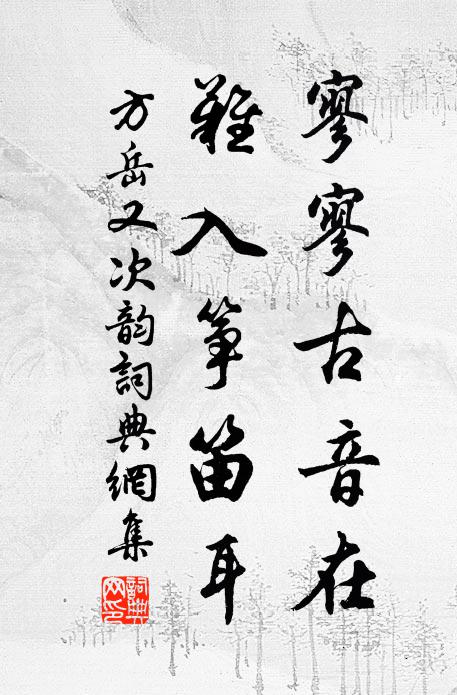 寥寥古音在
難入箏笛耳
方岳又次韵詞典網集
詞典